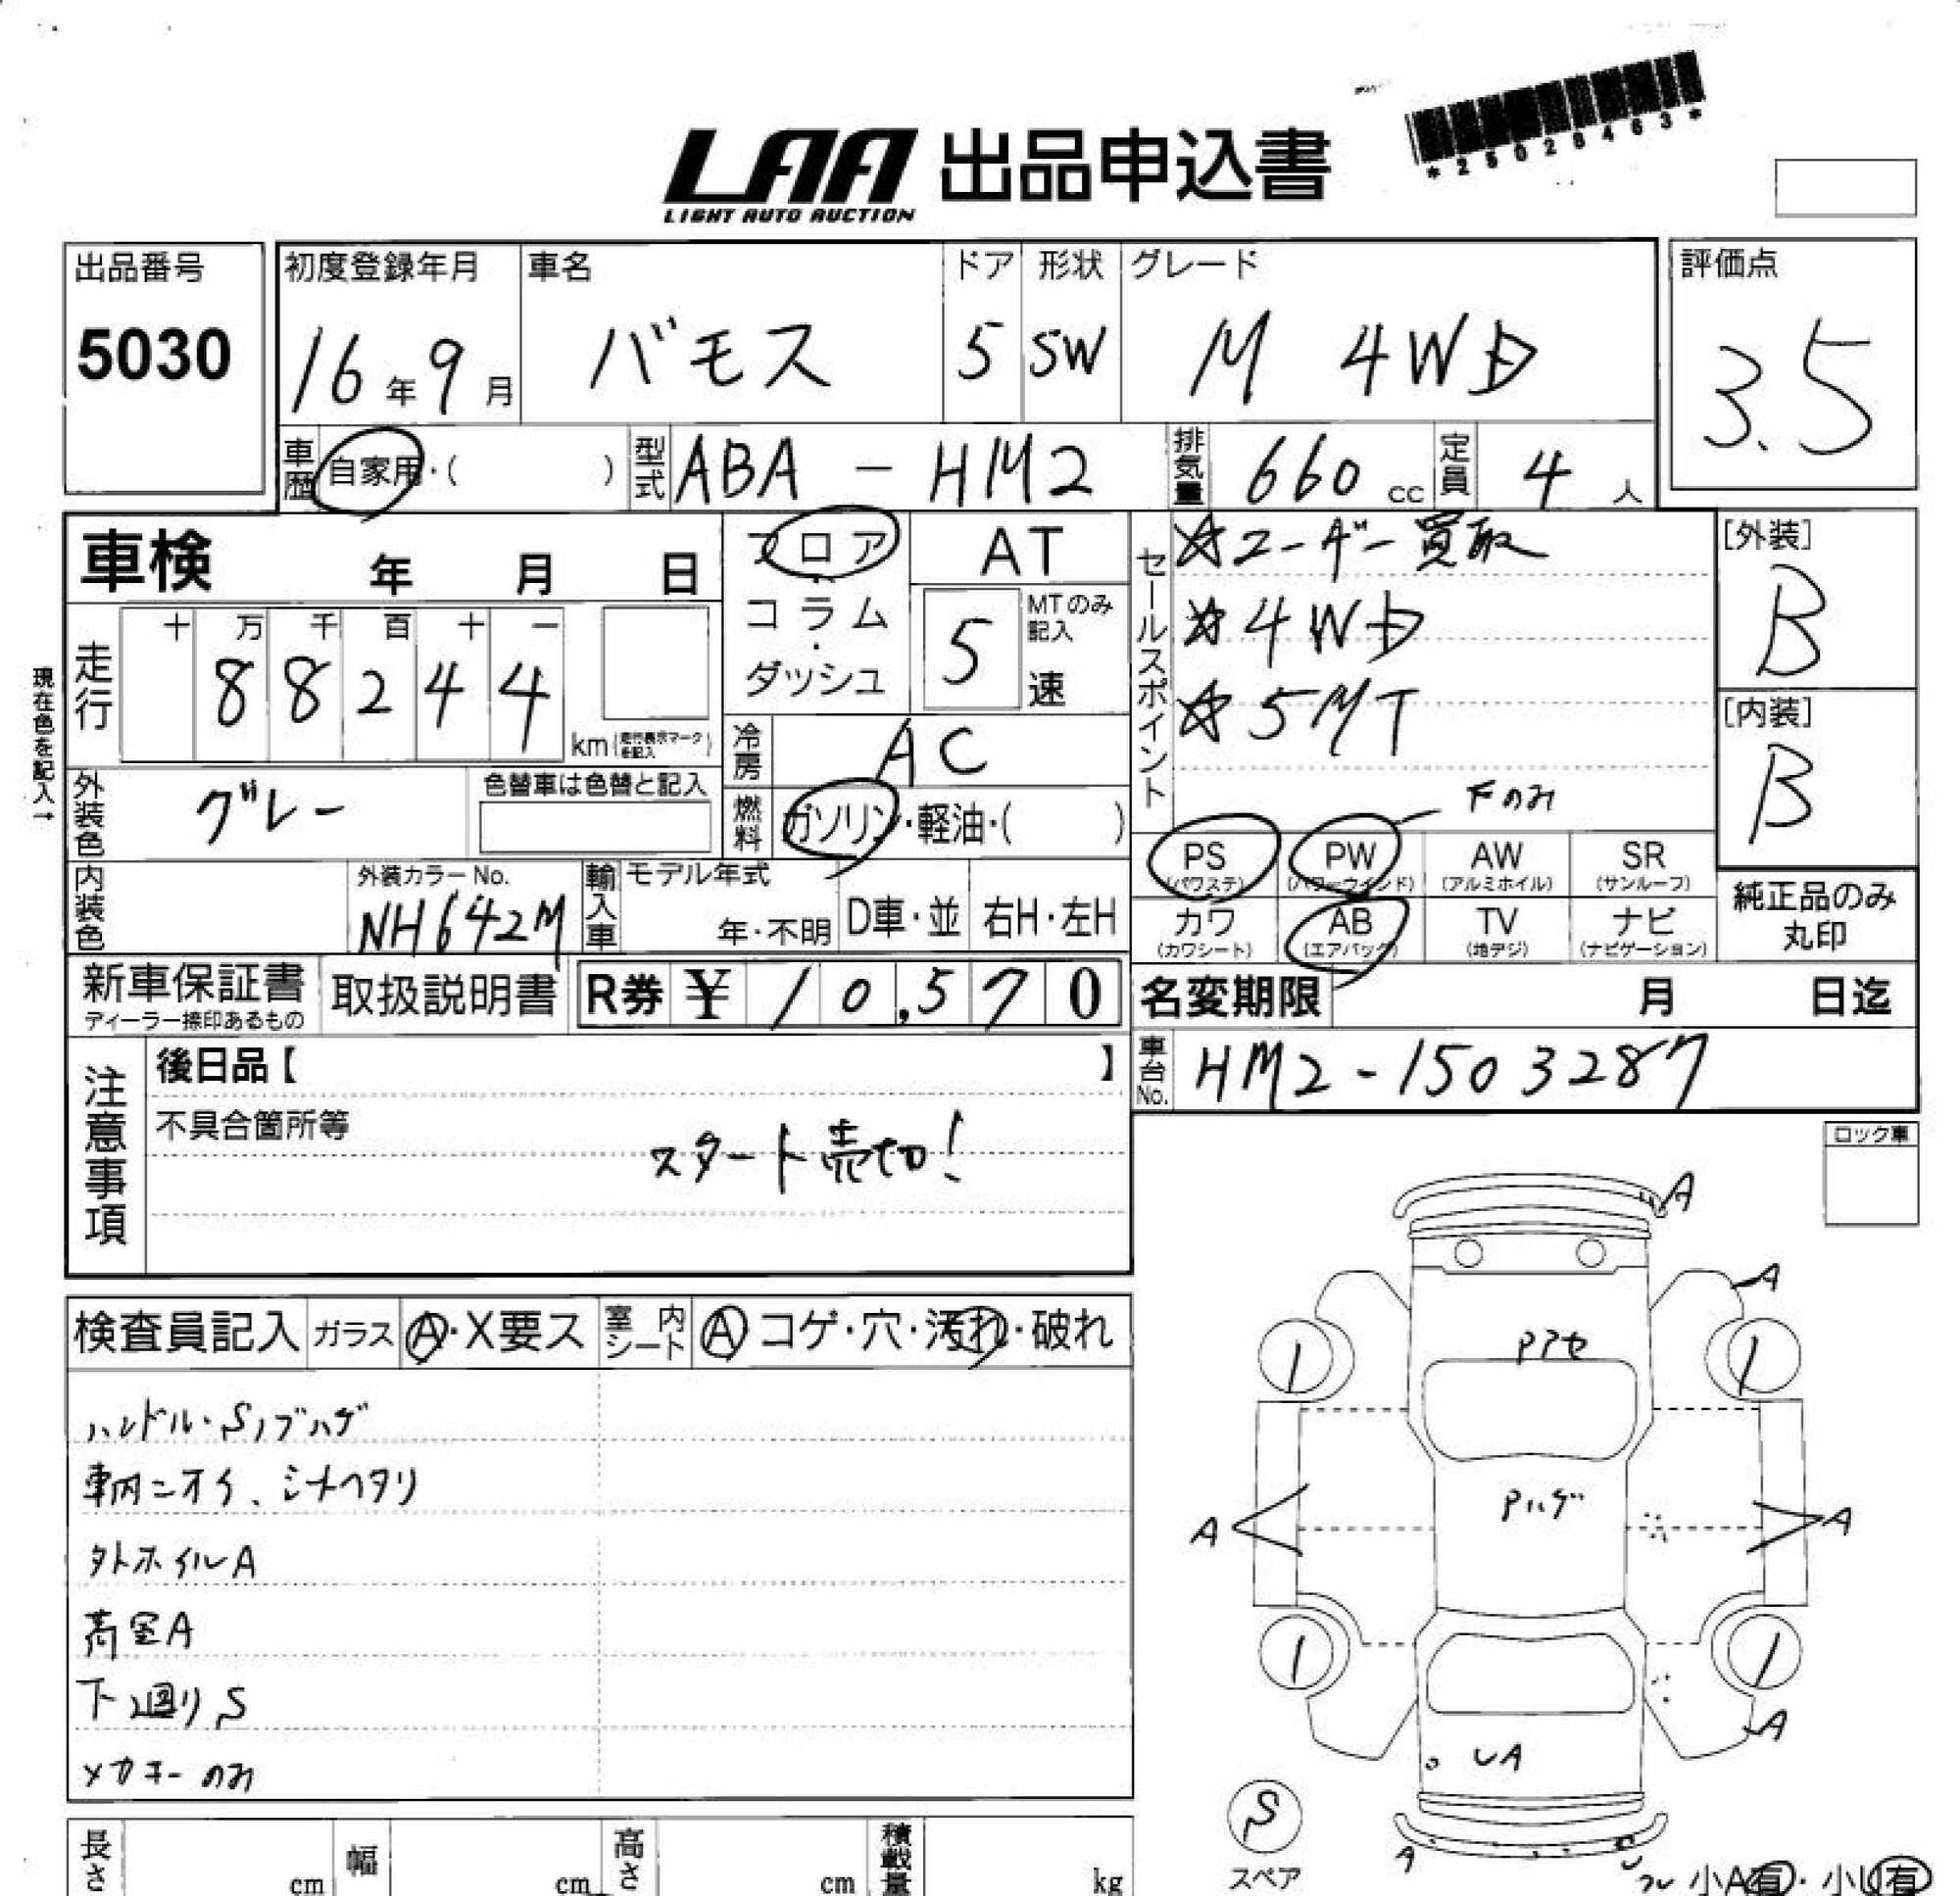 *25028463*
LAA 出品申込書
LIGHT AUTO AUCTION
出品番号 初度登録年月 車名 ドア 形状 グレード 評価点
5030 16年9月 バモス 5 SW M 4WD 3.5
車歴 自家用・( ) 型式 ABA-HM2 排気量 660cc 定員 4人
車検 年 月 日 フロア AT セールスポイント ☆ユーザー買取 [外装]
十 万 千 百 十 一 コラム MTのみ記入 ☆4WD B
走行 88244 km(走行表示マークを記入) ・ダッシュ 5速 ☆5MT [内装]
現在色を記入→
冷房 AC B
外装色 グレー 色替車は色替と記入 燃料 ガソリン・軽油・( ) Fのみ
PS(パワステ) PW(パワーウインド) AW(アルミホイル) SR(サンルーフ)
内装色 外装カラーNo. NH642M 輸入車 モデル年式 年・不明 D車・並 右H・左H
カワ(カワシート) AB(エアバック) TV(地デジ) ナビ(ナビゲーション) 純正品のみ丸印
新車保証書 ディーラー捺印あるもの 取扱説明書 R券 ¥10,570 名変期限 月 日迄
注意事項 後日品【 】 車台No. HM2-1503287
不具合箇所等
スタート売切!
ロック車
検査員記入 ガラス A・X要ス 室内シート A コゲ・穴・汚れ・破れ
ハンドル・Sノブハゲ
車内ニオイ、シートヘタリ
タトホイルA
荷室A
下廻りS
メカキーのみ
A
A
Pアセ
1 1
Pハゲ
A A
1 1
A
UA
S
スペア
A
小A有・小U有
長さ cm 幅 cm 高さ cm 積載量 kg